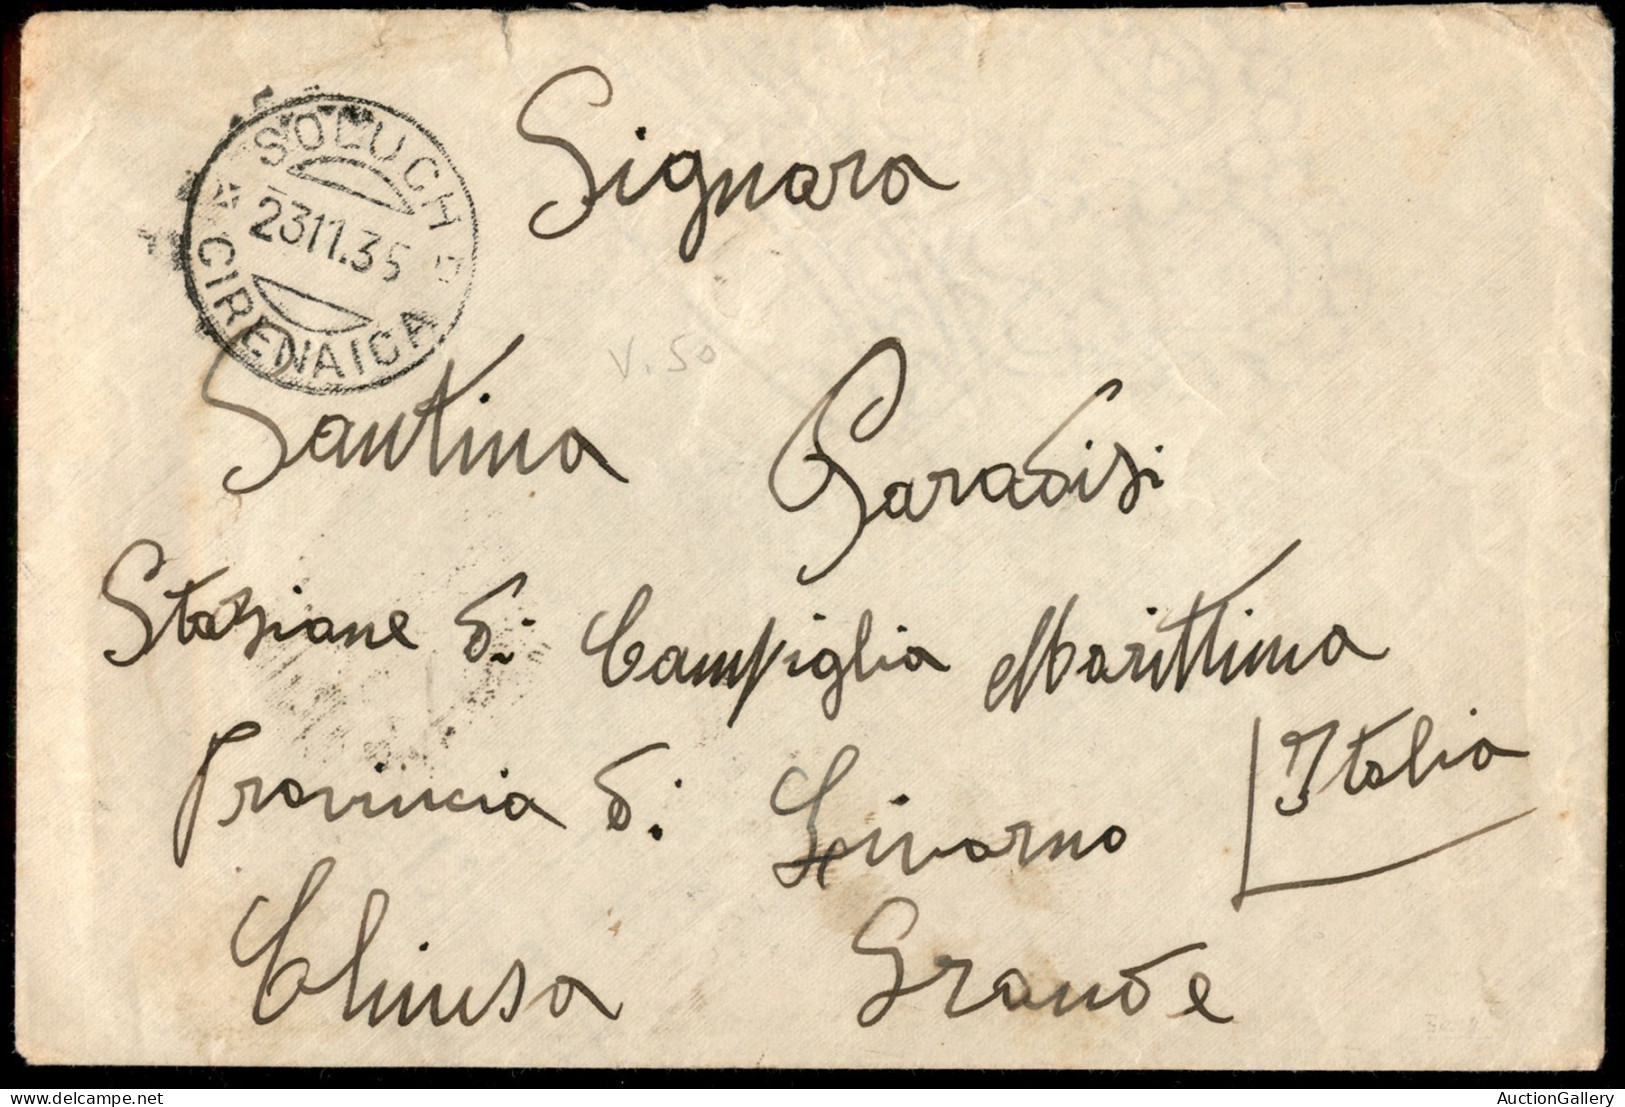 SOLUCH
23 11.35
CIRENAICA
Signora
V. 50
Santina Paradisi
Stazione di Campiglia Marittima
Provincia di Livorno Italia
Chiusa Grande
delcampe.net
AuctionGallery